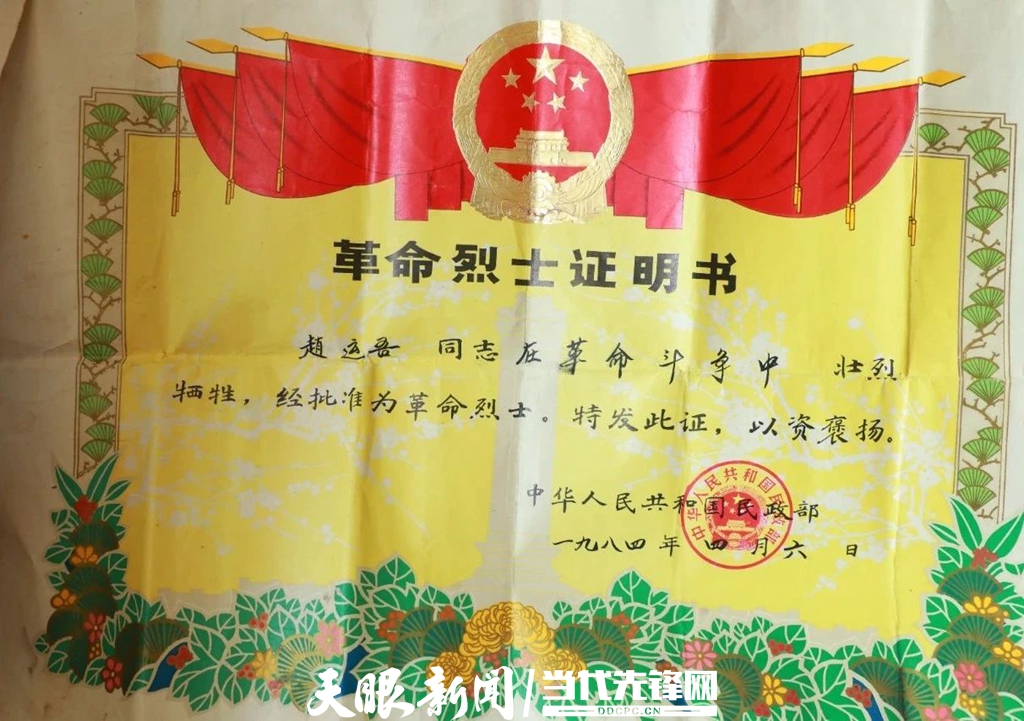 革命烈士证明书
赵运吾 同志在革命斗争中 壮烈
牺牲，经批准为革命烈士。特发此证，以资褒扬。
中华人民共和国民政部
一九八四年四月六日
中华人民共和国民政部
天眼新闻/当代先锋网
DDCPC.CN